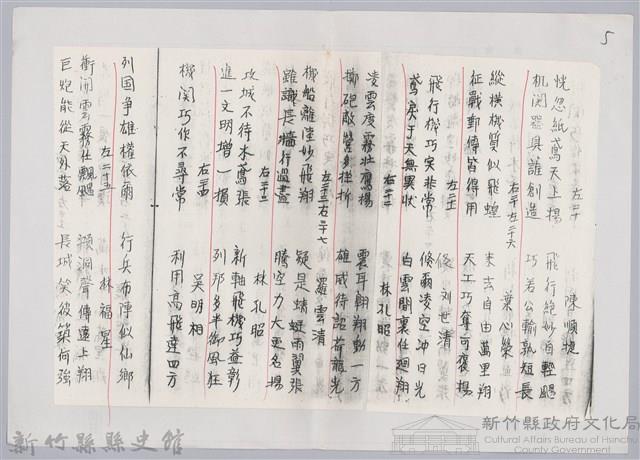 5
左二十 陳順捷
恍忽紙鳶天上揚 飛行絕妙自輕颺
机関器具誰創造 巧若公輸孰短長
右二十 左二十六 葉心榮
縱橫機質似飛蝗 來去自由萬里翔
征戰郵傳皆得用 天工巧奪可褒揚
左二 劉世清
飛行機巧实非常 倏爾凌空冲日光
鳶矣于天無異狀 白雲開裏任廻翔
右二十二 林孔昭
凌雲度霧壮鷹揚 震耳翱翔動一方
擲砲敵營多挫折 雄威待詔荷龍光
左二十三右二十七 羅雲清
機船離陸妙飛翔 疑是蜻蜓雨翼張
雖識長牆行過盡 騰空力大更名揚
右二十三 林孔昭
攻城不待木鳶張 新軸飛機巧益彰
進一文明增一損 列邦多半御風狂
右二十四 吳明相
機関巧作不尋常 利用高飛達四方
列国争雄權依爾 行兵布陣似仙鄉
左二十五 林福星
衝開雲霧任飄颺 澒洞聲傳遠上翔
巨跑能從天外落 長城笑後築何強
新竹縣縣史館
新竹縣政府文化局
Cultural Affairs Bureau of Hsinchu County Government